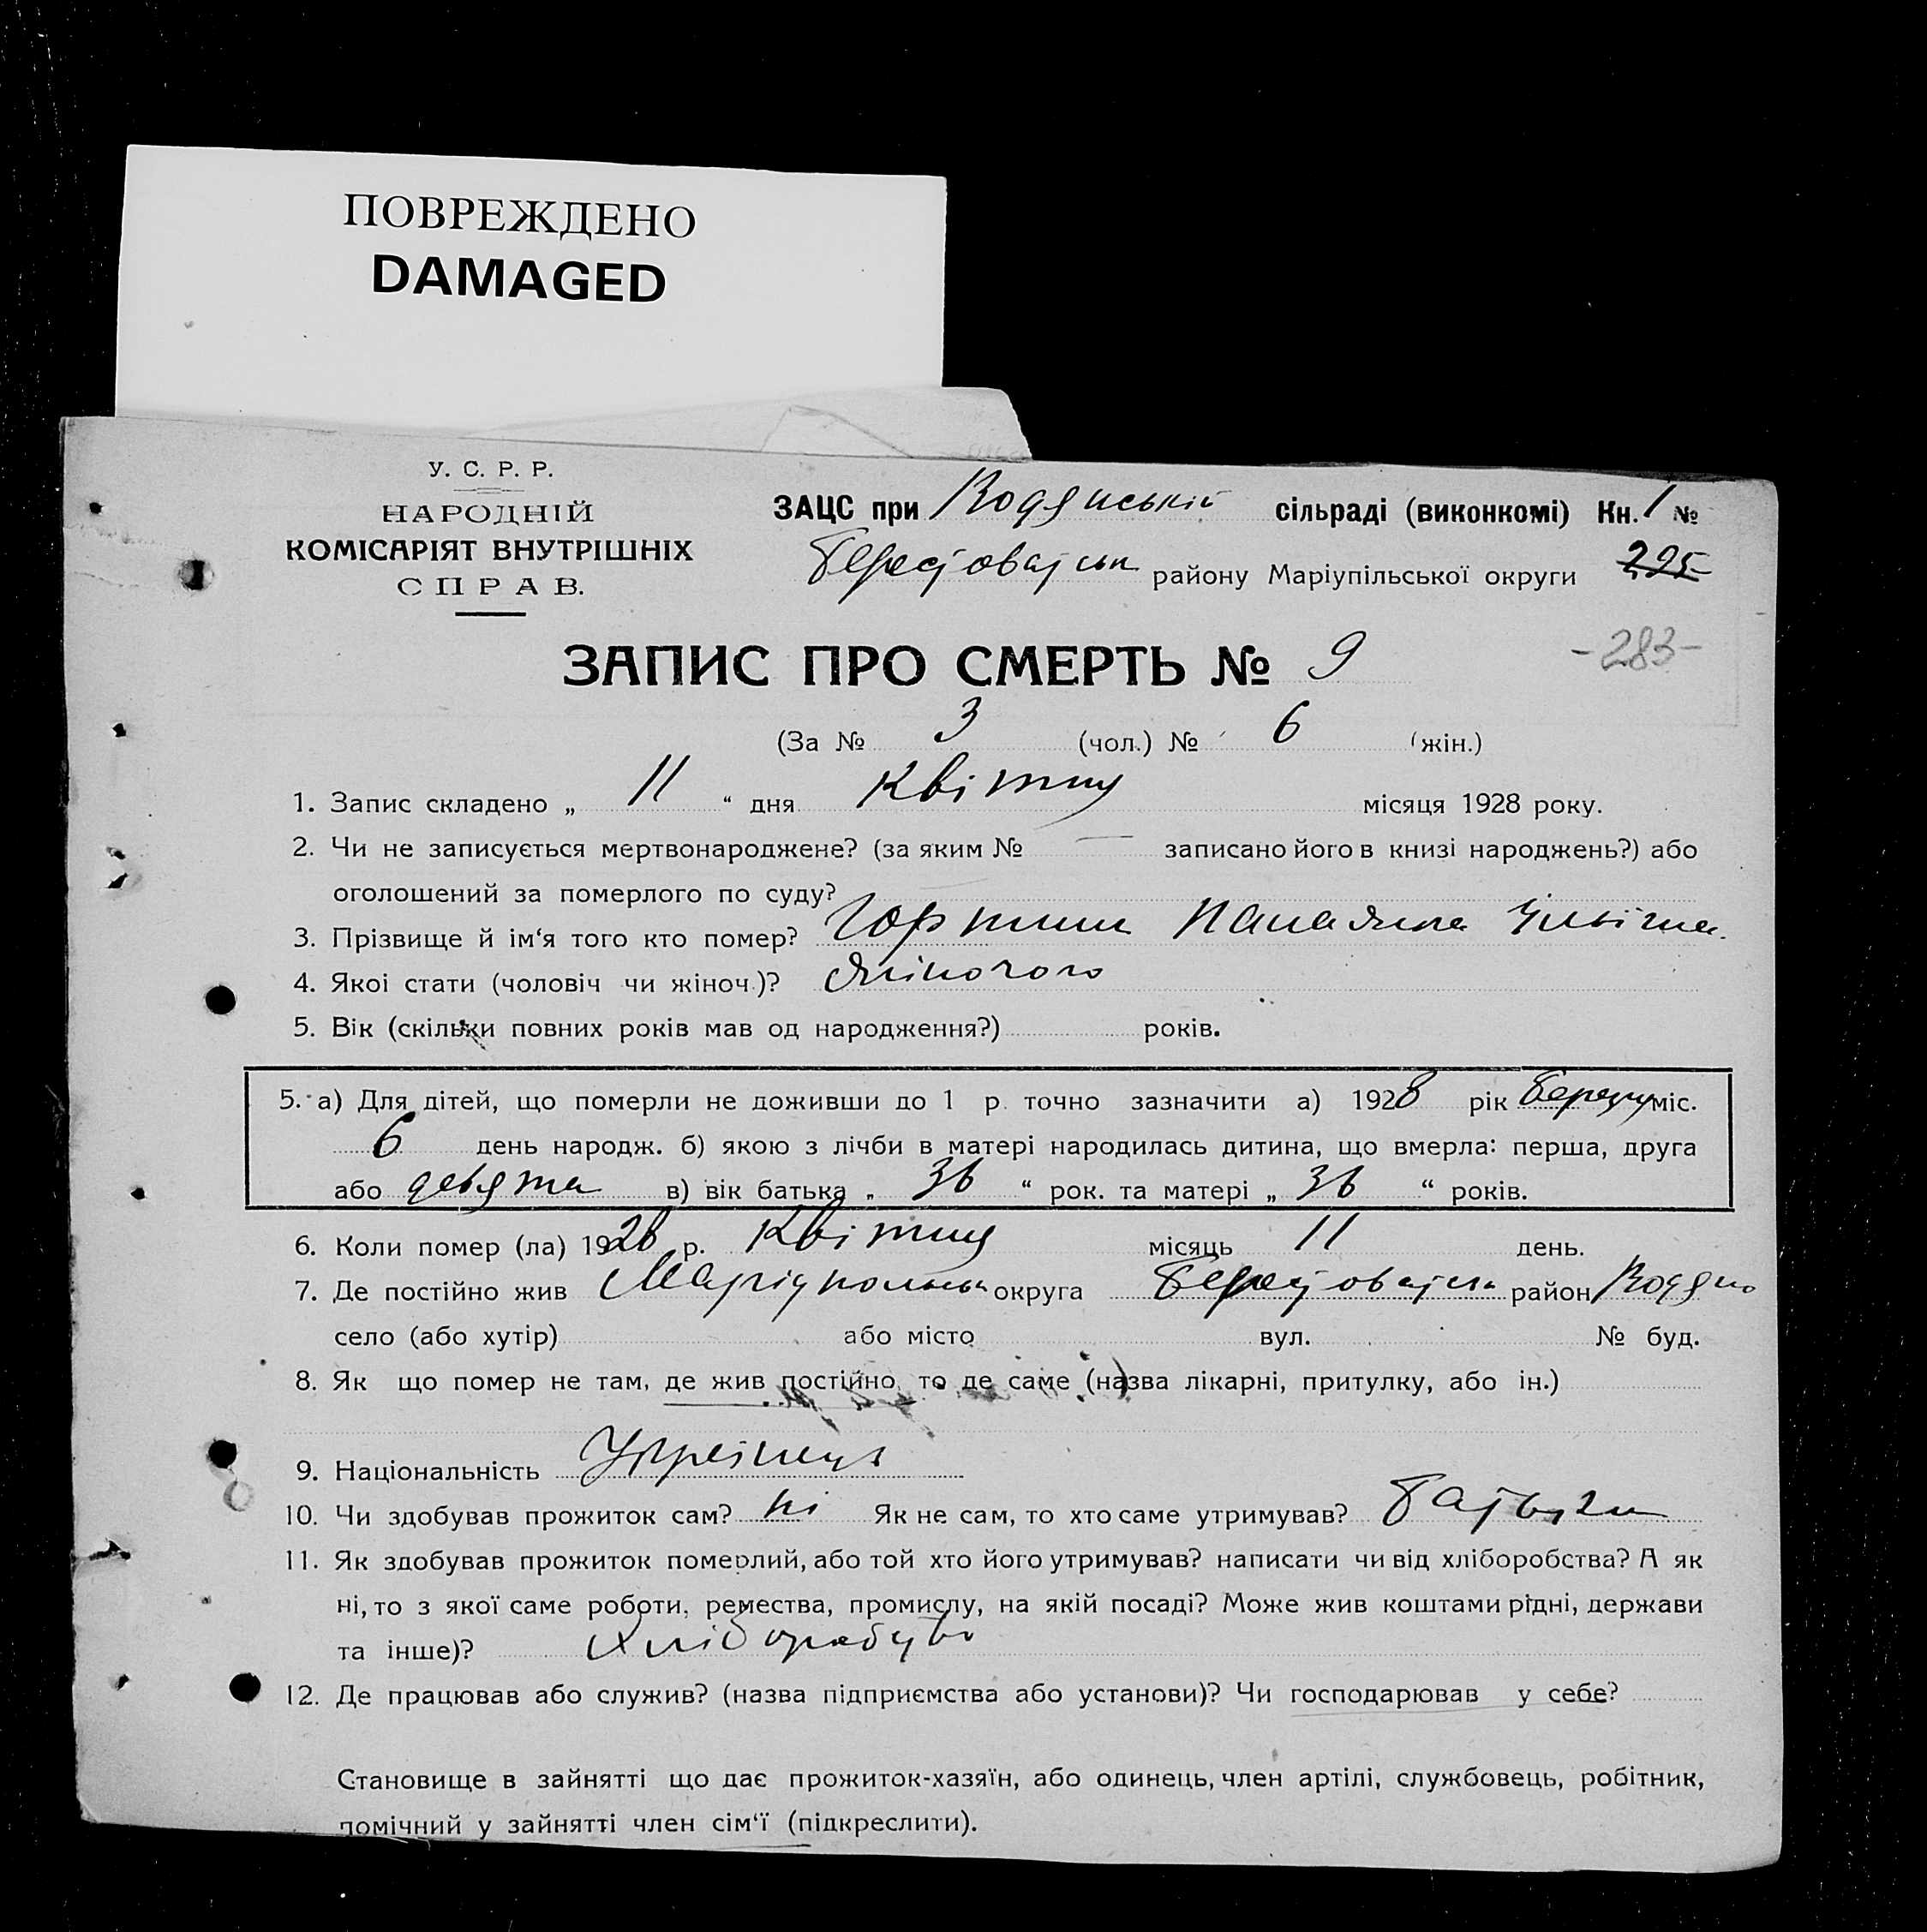 ПОВРЕЖДЕНО
DAMAGED
У. С. Р. Р.
НАРОДНІЙ
КОМІСАРІЯТ ВНУТРІШНІХ
СПРАВ.
ЗАЦС при Водянській сільраді (виконкомі) Кн. 1 №
району Маріупільської округи 295
-283-
ЗАПИС ПРО СМЕРТЬ № 9
(За № 3 (чол.) № 6 (жін.)
1. Запис складено „ 11 “ дня Квітня місяця 1928 року.
2. Чи не записується мертвонароджене? (за яким № — записано його в книзі народжень?) або
оголошений за померлого по суду?
3. Прізвище й ім‘я того кто помер?
4. Якоі стати (чоловіч чи жіноч.)? Жіночого
5. Вік (скільки повних років мав од народження?) років.
5. а) Для дітей, що померли не доживши до 1 р. точно зазначити а) 1928 рік Березня міс.
6 день народж. б) якою з лічби в матері народилась дитина, що вмерла: перша, друга
або девята в) вік батька „ 36 “ рок. та матері „ 36 “ років.
6. Коли помер (ла) 1928 р. Квітня місяць 11 день.
7. Де постійно жив округа район Водяно
село (або хутір) або місто вул. № буд.
8. Як що помер не там, де жив постійно, то де саме (назва лікарні, притулку, або ін.)
9. Національність
10. Чи здобував прожиток сам? ні Як не сам, то хто саме утримував? батьки
11. Як здобував прожиток померлий, або той хто його утримував? написати чи від хліборобства? А як
ні, то з якої саме роботи, ремества, промислу, на якій посаді? Може жив коштами рідні, держави
та інше)?
12. Де працював або служив? (назва підприємства або установи)? Чи господарював у себе?
Становище в зайнятті що дає прожиток-хазяїн, або одинець, член артілі, службовець, робітник,
помічний у зайнятті член сім‘ї (підкреслити).